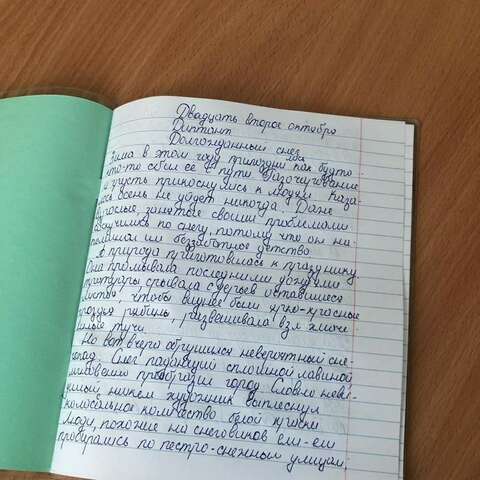 Двадцать второе октября
Диктант
Долгожданный снег
Зима в этом году припоздни лась как будто
что-то сбил её в пути Разочарование
и грусть прикоснулись к людям. Каза-
лось осень не уйдет никогда. Даже
взрослые, занятые своими проблемами
соскучились по снегу, потому что он на-
поминал им беззаботное детство
А природа приготовилась к празднику
Она промывала последними дождями
тротуары срывала с деревьев оставшиеся
листья, чтобы виднее были ярко-красные
грозди рябины, развешивала
тучи.
Но вот вчера обрушился невероятный сне-
гопад. Снег падающий сплошной лавиной
мгновенно преобразил город. Словно неви-
димый никем художник выплеснул
колоссальное количество белой краски
Люди, похожие на снеговиков еле-ели
пробирались по пестро-снежным улицам.